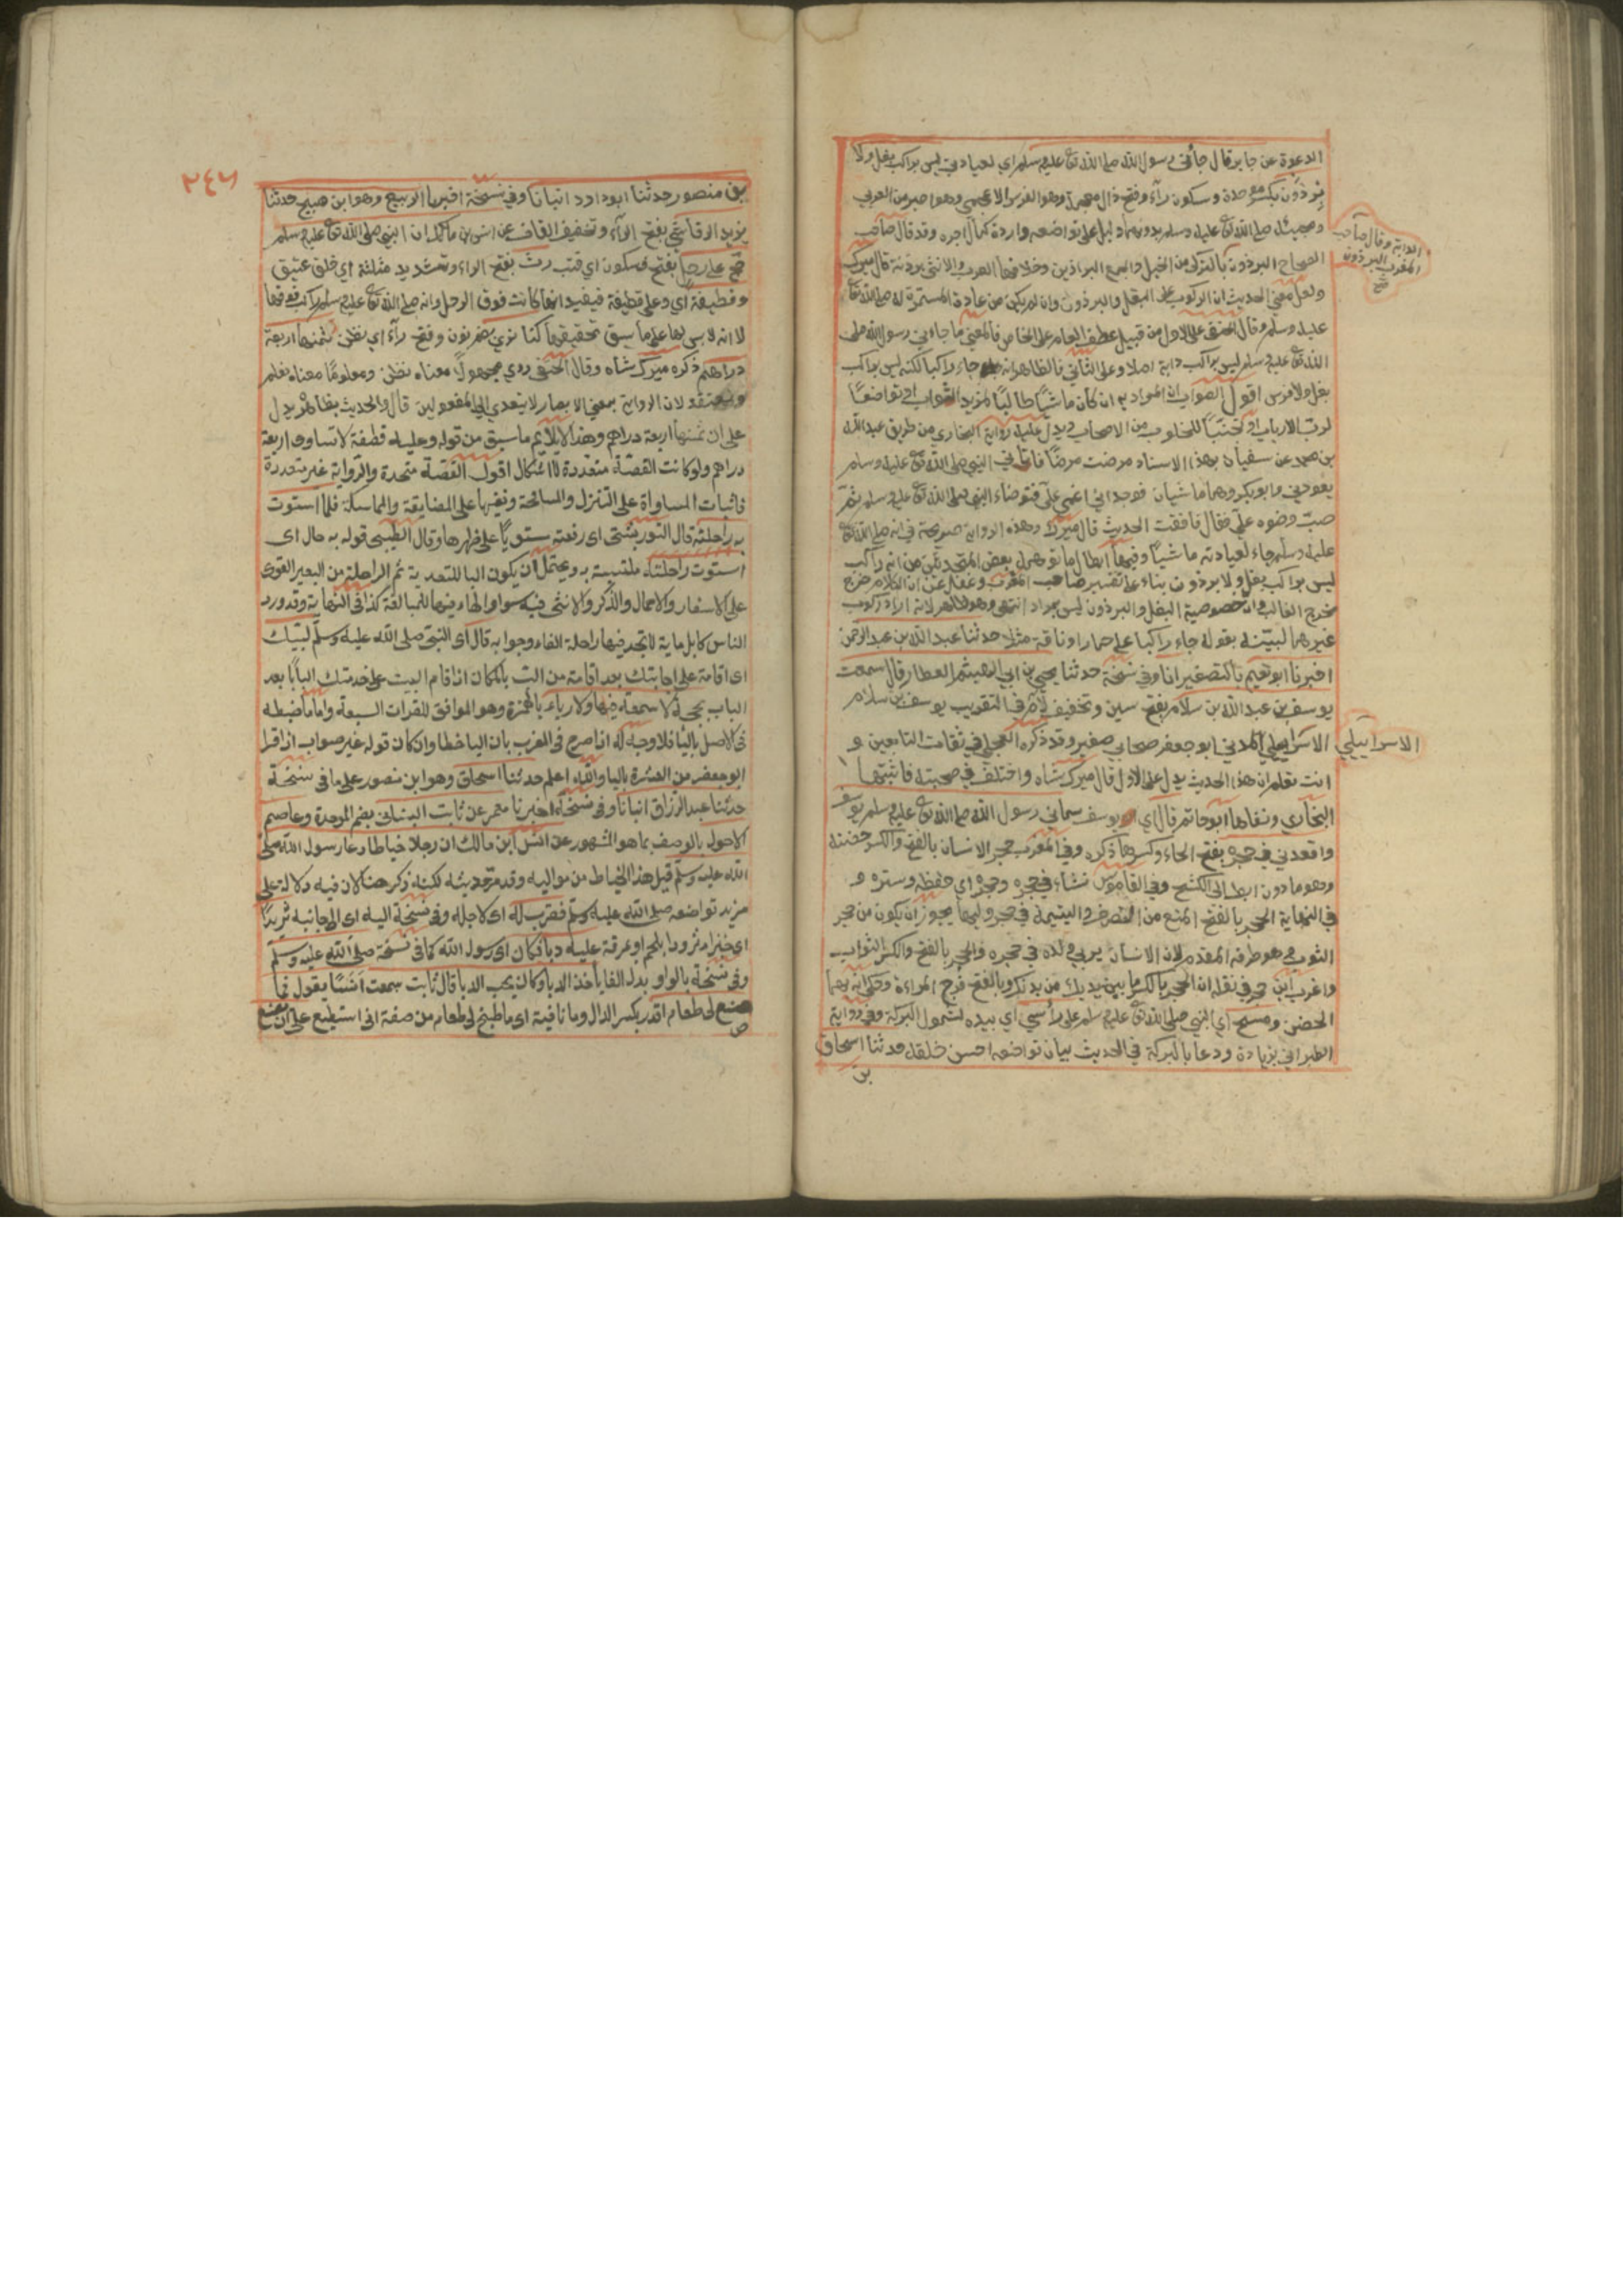 الدعوة عن جابر قال جاءني رسول الله صلى الله تعالى عليه وسلم اي لعيادتي ليس براكب بغل ولا
برذون بكسر موحدة وسكون راء وفتح ذال معجمة وهو الفرس الاعجمي وهو اصبر من العربي
ومجيئه صلى الله تعالى عليه وسلم بدونهما دليل على تواضعه وارادة كمال اجره وقد قال صاحب
الدابة وقال صاحب
المغرب البرذون
صح
الصحاح البرذون بالتركي من الخيل والجمع البراذين وخلافها العرب والانثى برذنة قال ميرك
ولعل معنى الحديث ان الركوب على البغل والبرذون وان لم يكن من عادته المستمرة له صلى الله تعالى
عليه وسلم وقال الحنفي على الاول من قبيل عطف العام على الخاص فالمعنى ما جاءني رسول الله صلى
الله تعالى عليه وسلم ليس براكب دابة اصلا وعلى الثاني فالظاهر انه جاء راكبا لكنه ليس براكب
بغل ولا فرس اقول الصواب ان المراد به ان كان ماشيا طالبا لمزيد الثواب او تواضعا
لرب الارباب او تجنبا للخلوب من الاصحاب ويدل عليه رواية البخاري من طريق عبد الله
بن محمد عن سفيان بهذا الاسناد مرضت مرضا فاتاني النبي صلى الله تعالى عليه وسلم
يعودني وابو بكر وهما ماشيان فوجداني اغمي علي فتوضاء النبي صلى الله تعالى عليه وسلم ثم
صب وضوه علي فقال فافقت الحديث قال ميرك وهذه الرواية صريحة في انه صلى الله تعالى
عليه وسلم جاء لعيادته ماشيا وفيها ابطال ما توهمه بعض المتحدثين من انه راكب
ليس براكب بغل ولا برذون بناء على تفسير صاحب المغرب وغفل عن ان الكلام خرج
مخرج الغالب وان خصوصية البغل والبرذون ليس بمراد انتهى وهو ظاهر لانه اراد ركوب
غيرهما لبينه بقوله جاء راكبا على حمار او ناقة مثلا حدثنا عبد الله بن عبد الرحمن
اخبرنا ابو نعيم بالتصغير انا وفي نسخة حدثنا يحيى بن ابي الهيثم العطار قال سمعت
يوسف بن عبد الله بن سلام بفتح سين وتخفيف لام في التقريب يوسف بن سلام
الاسراييلي المدني ابو جعفر صحابي صغير وقد ذكره العجلي في ثقات التابعين و
الاسراييلي
انت تعلم ان هذا الحديث يدل على الاول قال ميرك شاه واختلف في صحبته فاثبتها
البخاري ونفاها ابو حاتم قال اي يوسف سماني رسول الله صلى الله تعالى عليه وسلم يوسف
واقعدني في حجره بفتح الحاء وكسرها ذكره وفي المغرب حجر الانسان بالفتح والكسر حضنه
وهو ما دون ابطه الى الكشح وفي القاموس نشاء في حجره وحجره اي حفظه وستره و
في النهاية الحجر بالفتح المنع من التصرف واليتيمة في حجر وليها يجوز ان يكون من حجر
الثوب وهو طرفه المقدم لان الانسان يربي ولده في حجره والحجر بالفتح والكسر الثواب
واغرب ابن حجر في نقله ان الحجر بالكسر ما بين يديك من بدنك وبالفتح فرج المراءة وحكي انه بهما
الحضن ومسح اي النبي صلى الله تعالى عليه وسلم على راسي اي بيده لشمول البركة وفي رواية
الطبراني بزيادة ودعا بالبركة في الحديث بيان تواضعه احسن خلقه حدثنا اسحاق
بن
٢٤٦
بن منصور حدثنا ابو داود انبانا وفي نسخة اخبرنا الربيع وهو ابن صبيح حدثنا
يزيد الرقاشي بفتح الراء وتخفيف القاف عن انس بن مالك ان النبي صلى الله تعالى عليه وسلم
حج على رحل بفتح فسكون اي قتب رث بفتح الراء وتشديد مثلثة اي خلق عتيق
وقطيفة اي وعلى قطيفة فيفيد انها كانت فوق الرحل وانه صلى الله تعالى عليه وسلم راكب فوقها
لا انه لابس لها على ما سبق تحقيقها كنا نرى بضم نون وفتح راء اي نظن ثمنها اربعة
دراهم ذكره ميرك شاه وقال الحنفي روي مجهولا معناه نظن ومعلوما معناه نعلم
ونعتقد لان الرواية بمعنى الابصار لا يتعدى الى المفعولين قال والحديث بظاهره يدل
على ان ثمنها اربعة دراهم وهذا لا يلايم ما سبق من قوله وعليه قطفة لا تساوى اربعة
دراهم ولو كانت القصة متعددة لا اشكال اقول القصة متحدة والرواية غير متعددة
فاثبات المساواة على التنزل والمسامحة ونفيها على المضايقة والمماسكة فلما استوت
به راحلته قال التوربشتى اى رفعته مستويا على ظهرها وقال الطيبى قوله به حال اى
استوت راحلته ملتبسة به ويحتمل ان يكون البا للتعدية ثم الراحلة من البعير القوى
على الاسفار والاحمال والذكر والانثى فيه سوا والهاء فيها للمبالغة كذا فى النهاية وقد ورد
الناس كابل ماية لا تجد فيها راحلة الفاء وجوابه قال اى النبى صلى الله عليه وسلم لبيك
اى اقامة على اجابتك بعد اقامة من الب بالمكان اذا قام البيت على خدمتك البابا بعد
الباب بحجة لا سمعة فيها ولا رياء بالهمزة وهو الموافق للقرات السبعة واما ما ضبطه
فى الاصل باليا فلا وجه له اذ اصرح فى المغرب بان اليا خطا وان كان قوله غير صواب اذ اقرا
ابو جعفر من العشرة باليا والله اعلم حدثنا اسحاق وهو ابن منصور على ما فى نسخة
حدثنا عبد الرزاق انبانا وفى نسخة اخبرنا معمر عن ثابت البنانى بضم الموحدة وعاصم
الاحول بالوصف بما هو المشهور عن انس ابن مالك ان رجلا خياطا دعا رسول الله صلى
الله عليه وسلم قيل هذا الخياط من مواليه وقد مر حديثه لكنه ذكر هنا لان فيه دلالة على
مزيد تواضعه صلى الله عليه وسلم فقرب له اى لاجله وفى نسخة اليه اى الى جانبه ثريدا
اى خبزا مثرودا بلحم او عرقة عليه دبا فكان اى رسول الله كما فى نسخة صلى الله عليه وسلم
وفى نسخة بالواو بدل الفا ياخذ الدبا وكان يحب الدبا قال ثابت سمعت انسا يقول فما
صنع لى طعام اقدر بكسر الدال وما نافية اى ما طبخ لى طعام من صفة انى استطيع على ان يصنع